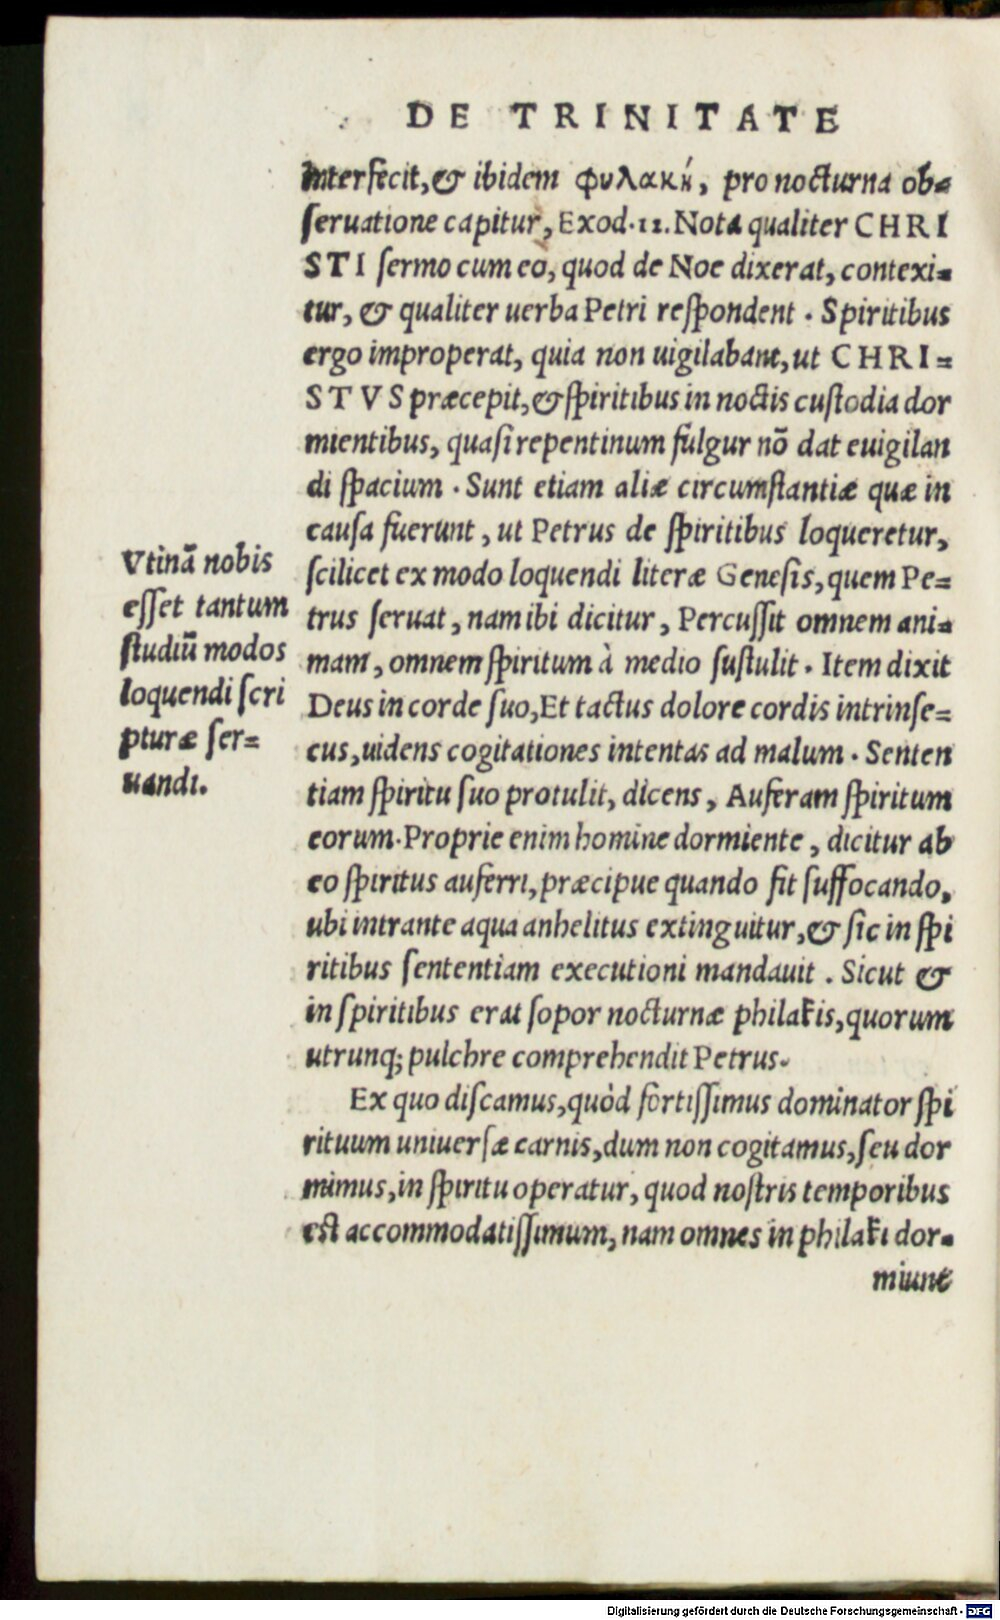 DE TRINITATE
interfecit, & ibidem φυλακή, pro nocturna ob=
seruatione capitur, Exod. 11. Nota qualiter CHRI
STI sermo cum eo, quod de Noe dixerat, contexi=
tur, & qualiter uerba Petri respondent. Spiritibus
ergo improperat, quia non uigilabant, ut CHRI=
STVS præcepit, & spiritibus in noctis custodia dor
mientibus, quasi repentinum fulgur nõ dat euigilan
di spacium. Sunt etiam aliæ circumstantiæ quæ in
causa fuerunt, ut Petrus de spiritibus loqueretur,
scilicet ex modo loquendi literæ Genesis, quem Pe=
trus seruat, nam ibi dicitur, Percussit omnem ani=
mam, omnem spiritum à medio sustulit. Item dixit
Deus in corde suo, Et tactus dolore cordis intrinse=
cus, uidens cogitationes intentas ad malum. Senten
tiam spiritu suo protulit, dicens, Auferam spiritum
eorum. Proprie enim homine dormiente, dicitur ab
eo spiritus auferri, præcipue quando fit suffocando,
ubi intrante aqua anhelitus extinguitur, & sic in spi
ritibus sententiam executioni mandauit. Sicut &
in spiritibus erat sopor nocturnæ philakis, quorum
utrunq; pulchre comprehendit Petrus.
Ex quo discamus, quòd fortissimus dominator spi
rituum uniuersæ carnis, dum non cogitamus, seu dor
mimus, in spiritu operatur, quod nostris temporibus
est accommodatissimum, nam omnes in philaki dor=
miunt
Vtinã nobis
esset tantum
studiũ modos
loquendi scri
pturæ ser=
uandi.
Digitalisierung gefördert durch die Deutsche Forschungsgemeinschaft - DFG